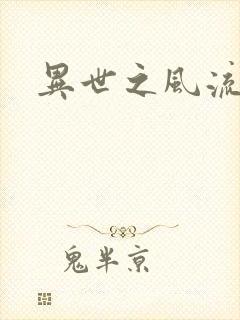 異世之風流
鬼半京